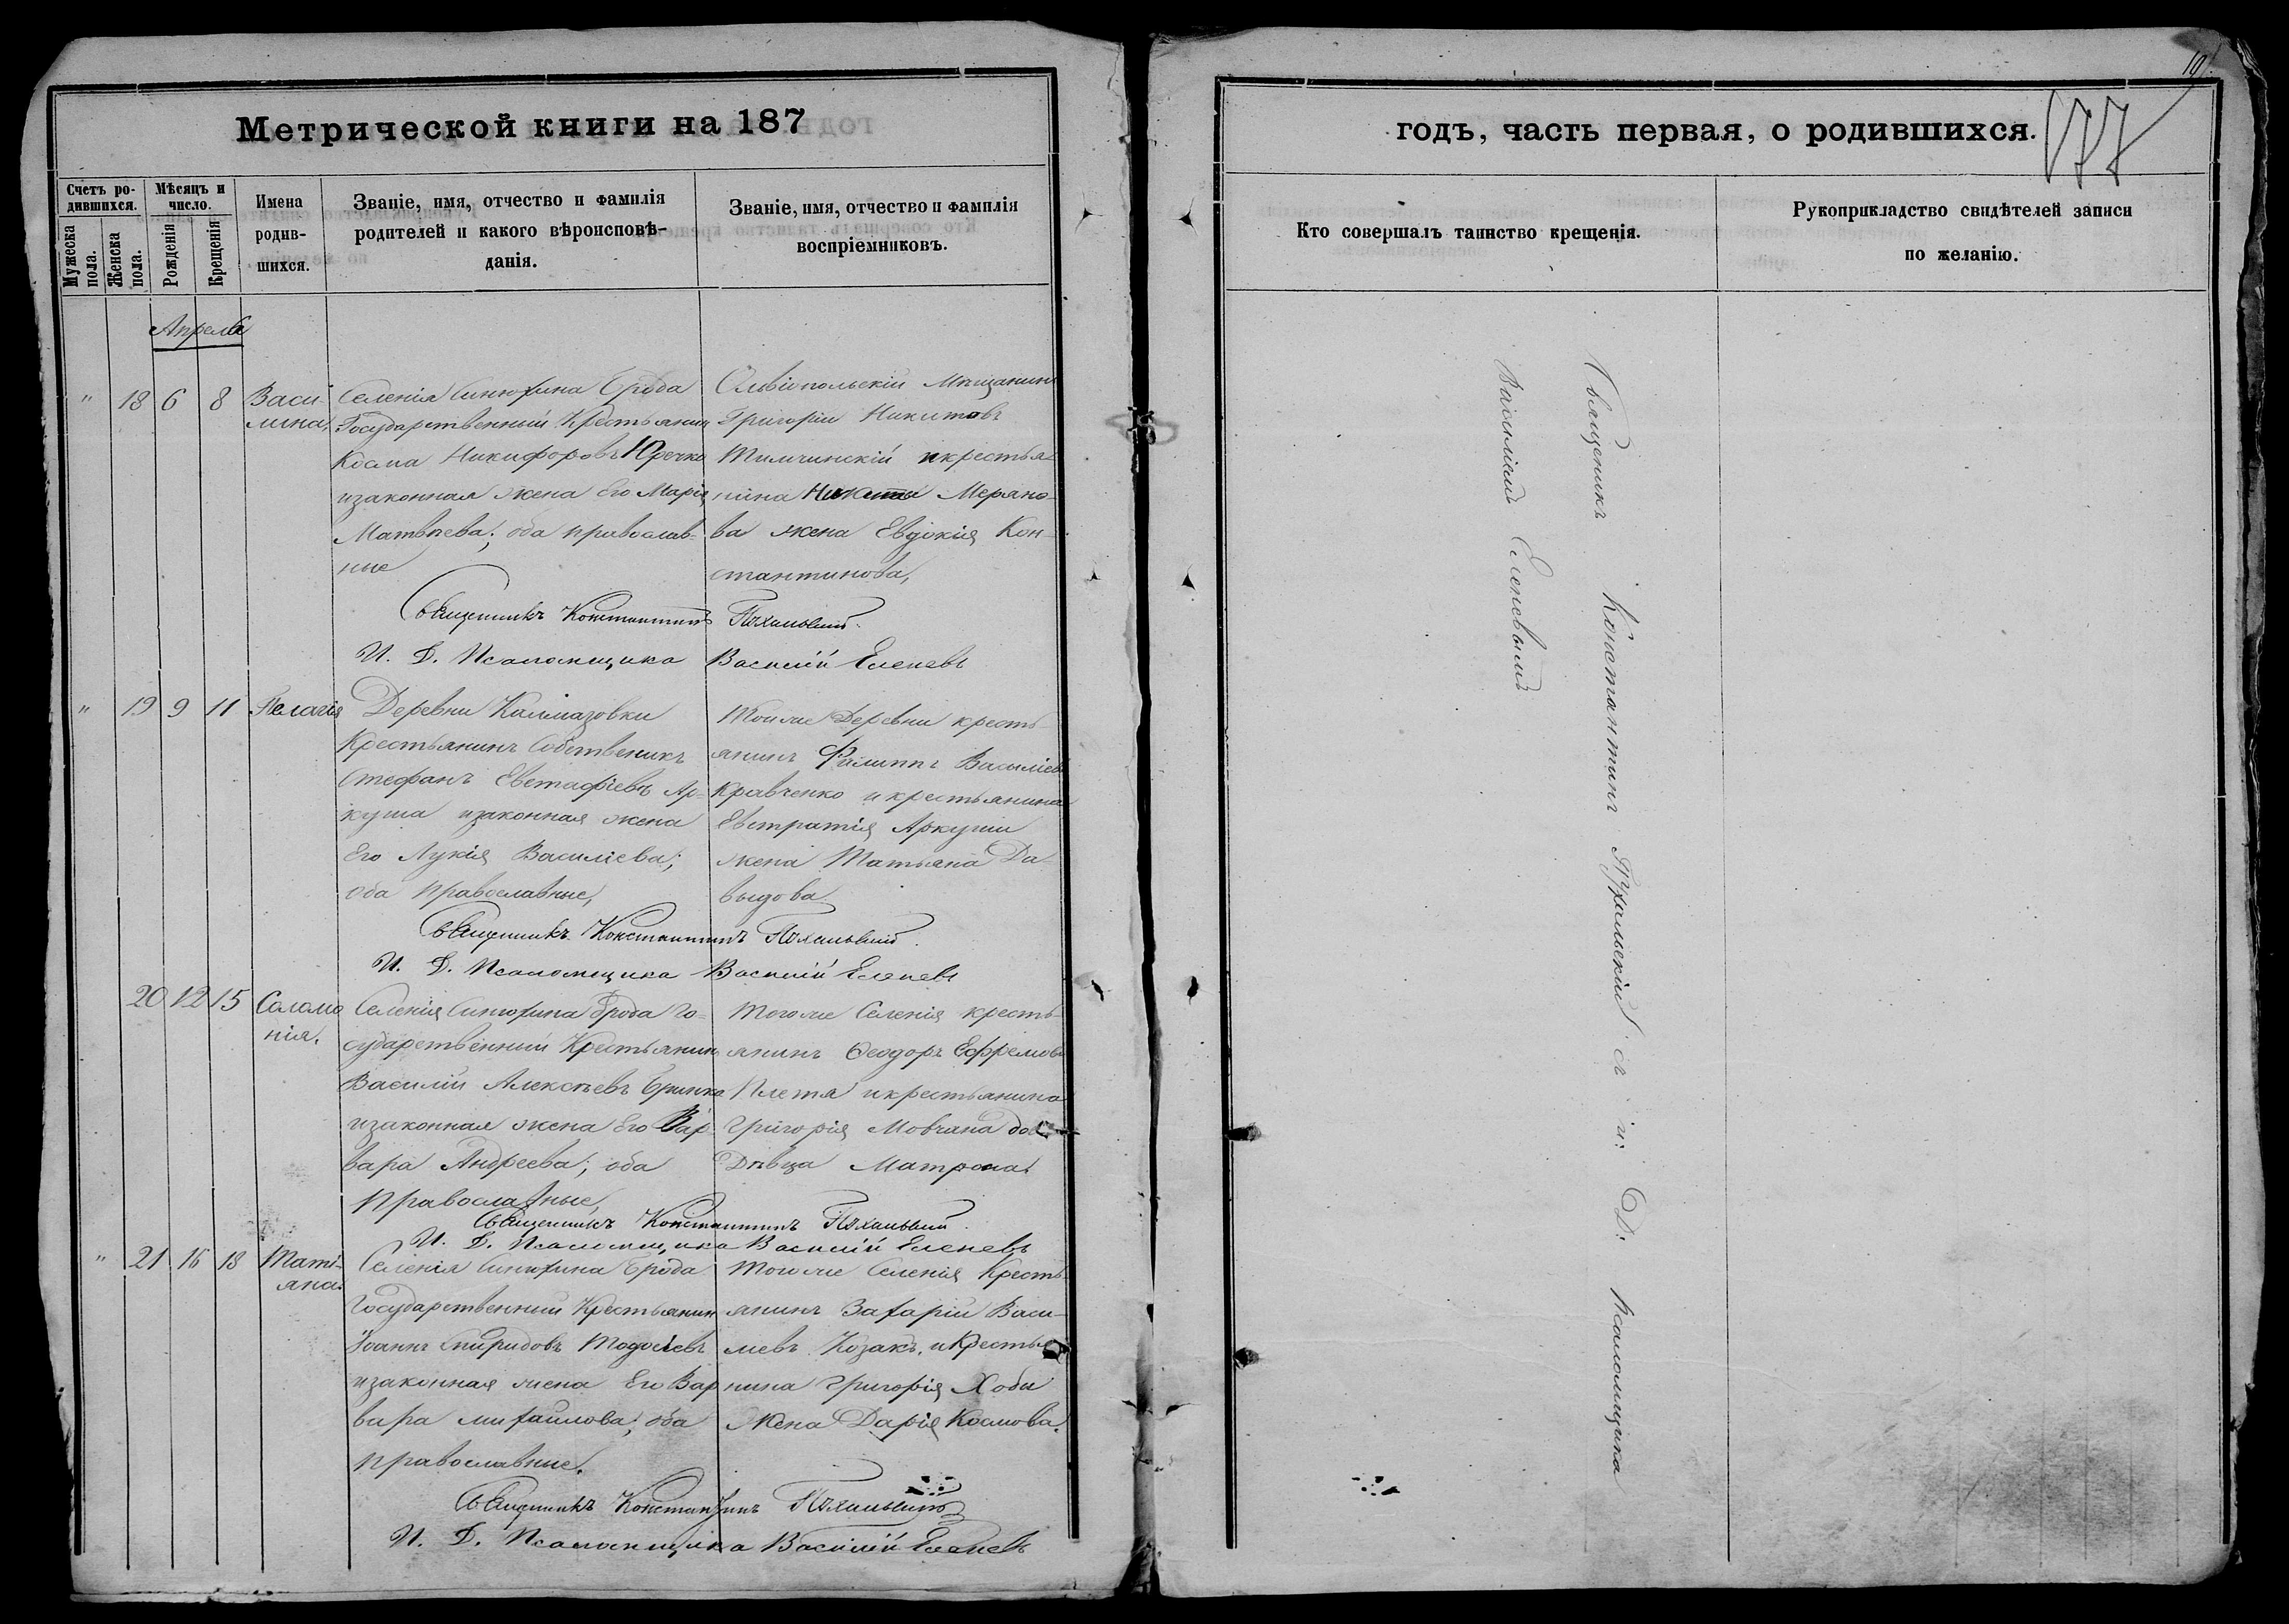 Метрической книги на 187
Счетъ ро-
дившихся.
Мѣсяцъ и
число.
Мужеска
пола.
Женска
пола.
Рожденія
Крещенія
Имена
родив-
шихся.
Званіе, имя, отчество и фамилія
родителей и какого вѣроисповѣ-
данія.
Званіе, имя, отчество и фамилія
воспріемниковъ.
Апрель
" 18 6 8
Васи
лина,
Селенія Синюхина Брода
Государственный Крестьянин
Косма Никифоровъ Юречко
изаконная жена Его Марія
Матвѣева; оба православ-
ные
Ольвіопольскій Мѣщанинъ
Григорій Никитовъ
Тимчинскій икрестья-
нина Никиты Меряно-
ва жена Евдокія Кон-
стантинова,
Священникъ Константинъ
И. Д. Псаломщика Василій Еленевъ
" 19 9 11
Пелагія
Деревни Калмазовки
Крестьянинъ Собственикъ
Стефанъ Евстафіевъ Ар-
куша изаконная жена
Его Лукія Василіева;
оба православные,
Тойже Деревни кресть-
янинъ Филиппъ Василіевъ
Кравченко икрестьянина
Евстратія Аркуши
жена Татьяна Да-
выдова
Священникъ Константинъ
И. Д. Псаломщика Василій Еленевъ
20 12 15
Саламо
нія.
Селенія Синюхина Брода Го-
сударственный Крестьянин
Василій Алексѣевъ
изаконная жена Его Вар-
вара Андреева; оба
православные,
Тогоже Селенія кресть-
янинъ Ѳеодоръ Ефремовъ
Плетя икрестьянина
Григорія Мовчана дочь
Дѣвица Матрона.
Священникъ Константинъ
И. Д. Псаломщика Василій Еленевъ
" 21 16 18
Таті-
яна.
Селенія Синюхина Брода
Государственный Крестьянин
Іоаннъ Спиридовъ
изаконная жена Его Вар
вара михаилова; оба
православные.
Тогоже Селенія Кресть-
янинъ Захарій Васи-
лиевъ Козакъ, икрестья
нина Григорія Хобы
жена Дарія Космова.
Священникъ Константинъ
И. Д. Псаломщика Василій Еленевъ
годъ, часть первая, о родившихся.
177
Кто совершалъ таинство крещенія.
Рукоприкладство свидѣтелей записи
по желанію.
Священникъ Константинъ Пухальскій съ и: Д: псаломщика
Василіемъ Еленевымъ